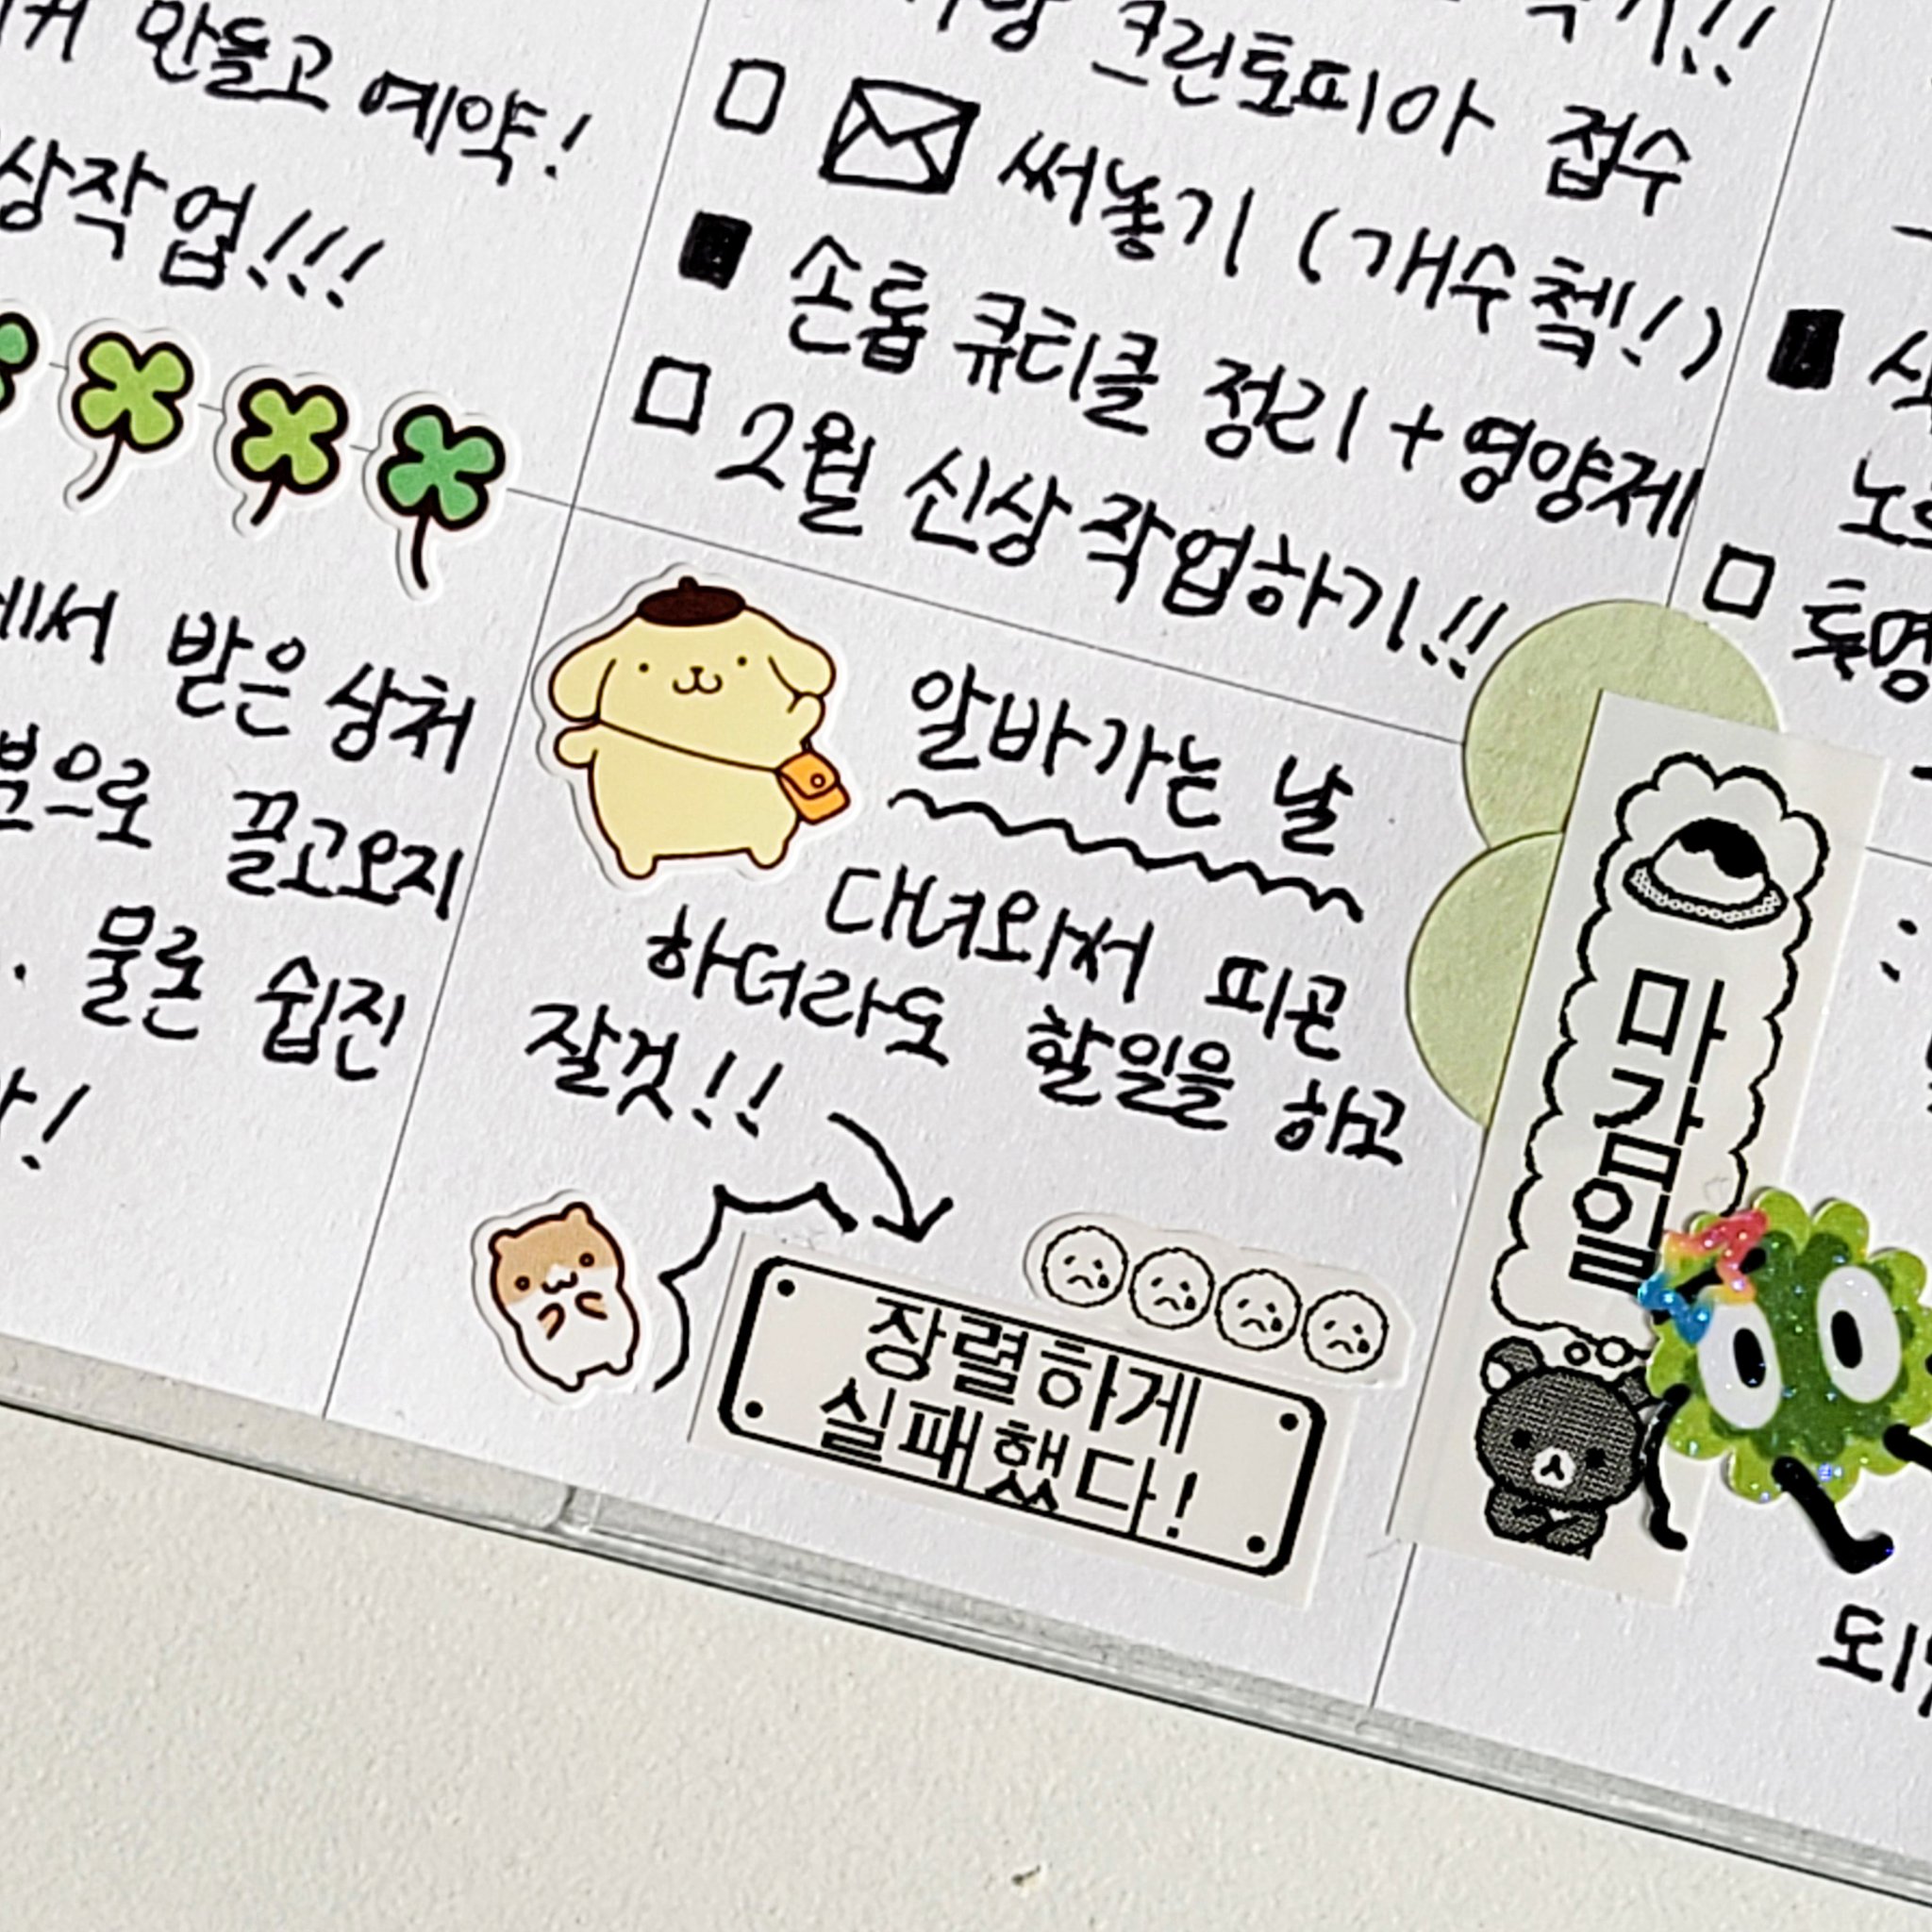 만들고 예약!
상작업!!!
받은 상처
으로 끌고오지
. 물론 쉽진
!
크린토피아 접수
□ 써놓기 (개수첵!)
■ 손톱 큐티클 정리+영양제
□ 2월 신상작업하기!!
알바가는 날
대녀와서 피곤
하더라도 할일을 하고
잘것!!
장렬하게
실패했다!
마감일
□ 투명